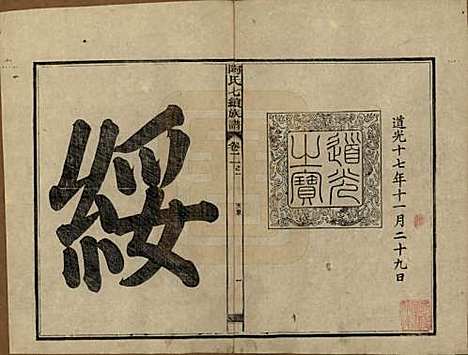 道光十七年十一月二十九日
道光
之寶
陶氏七續族譜
卷二之
綏